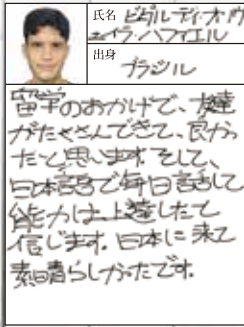 氏名 ビダル・ディ・オリ
ヴェイラ・ハファエル
出身
ブラジル
留学のおかげで、友達
がたくさんできて、良かっ
たと思います。そして、
日本語で毎日話して
能力は上達したと
信じます。日本に来て
素晴らしかったです。